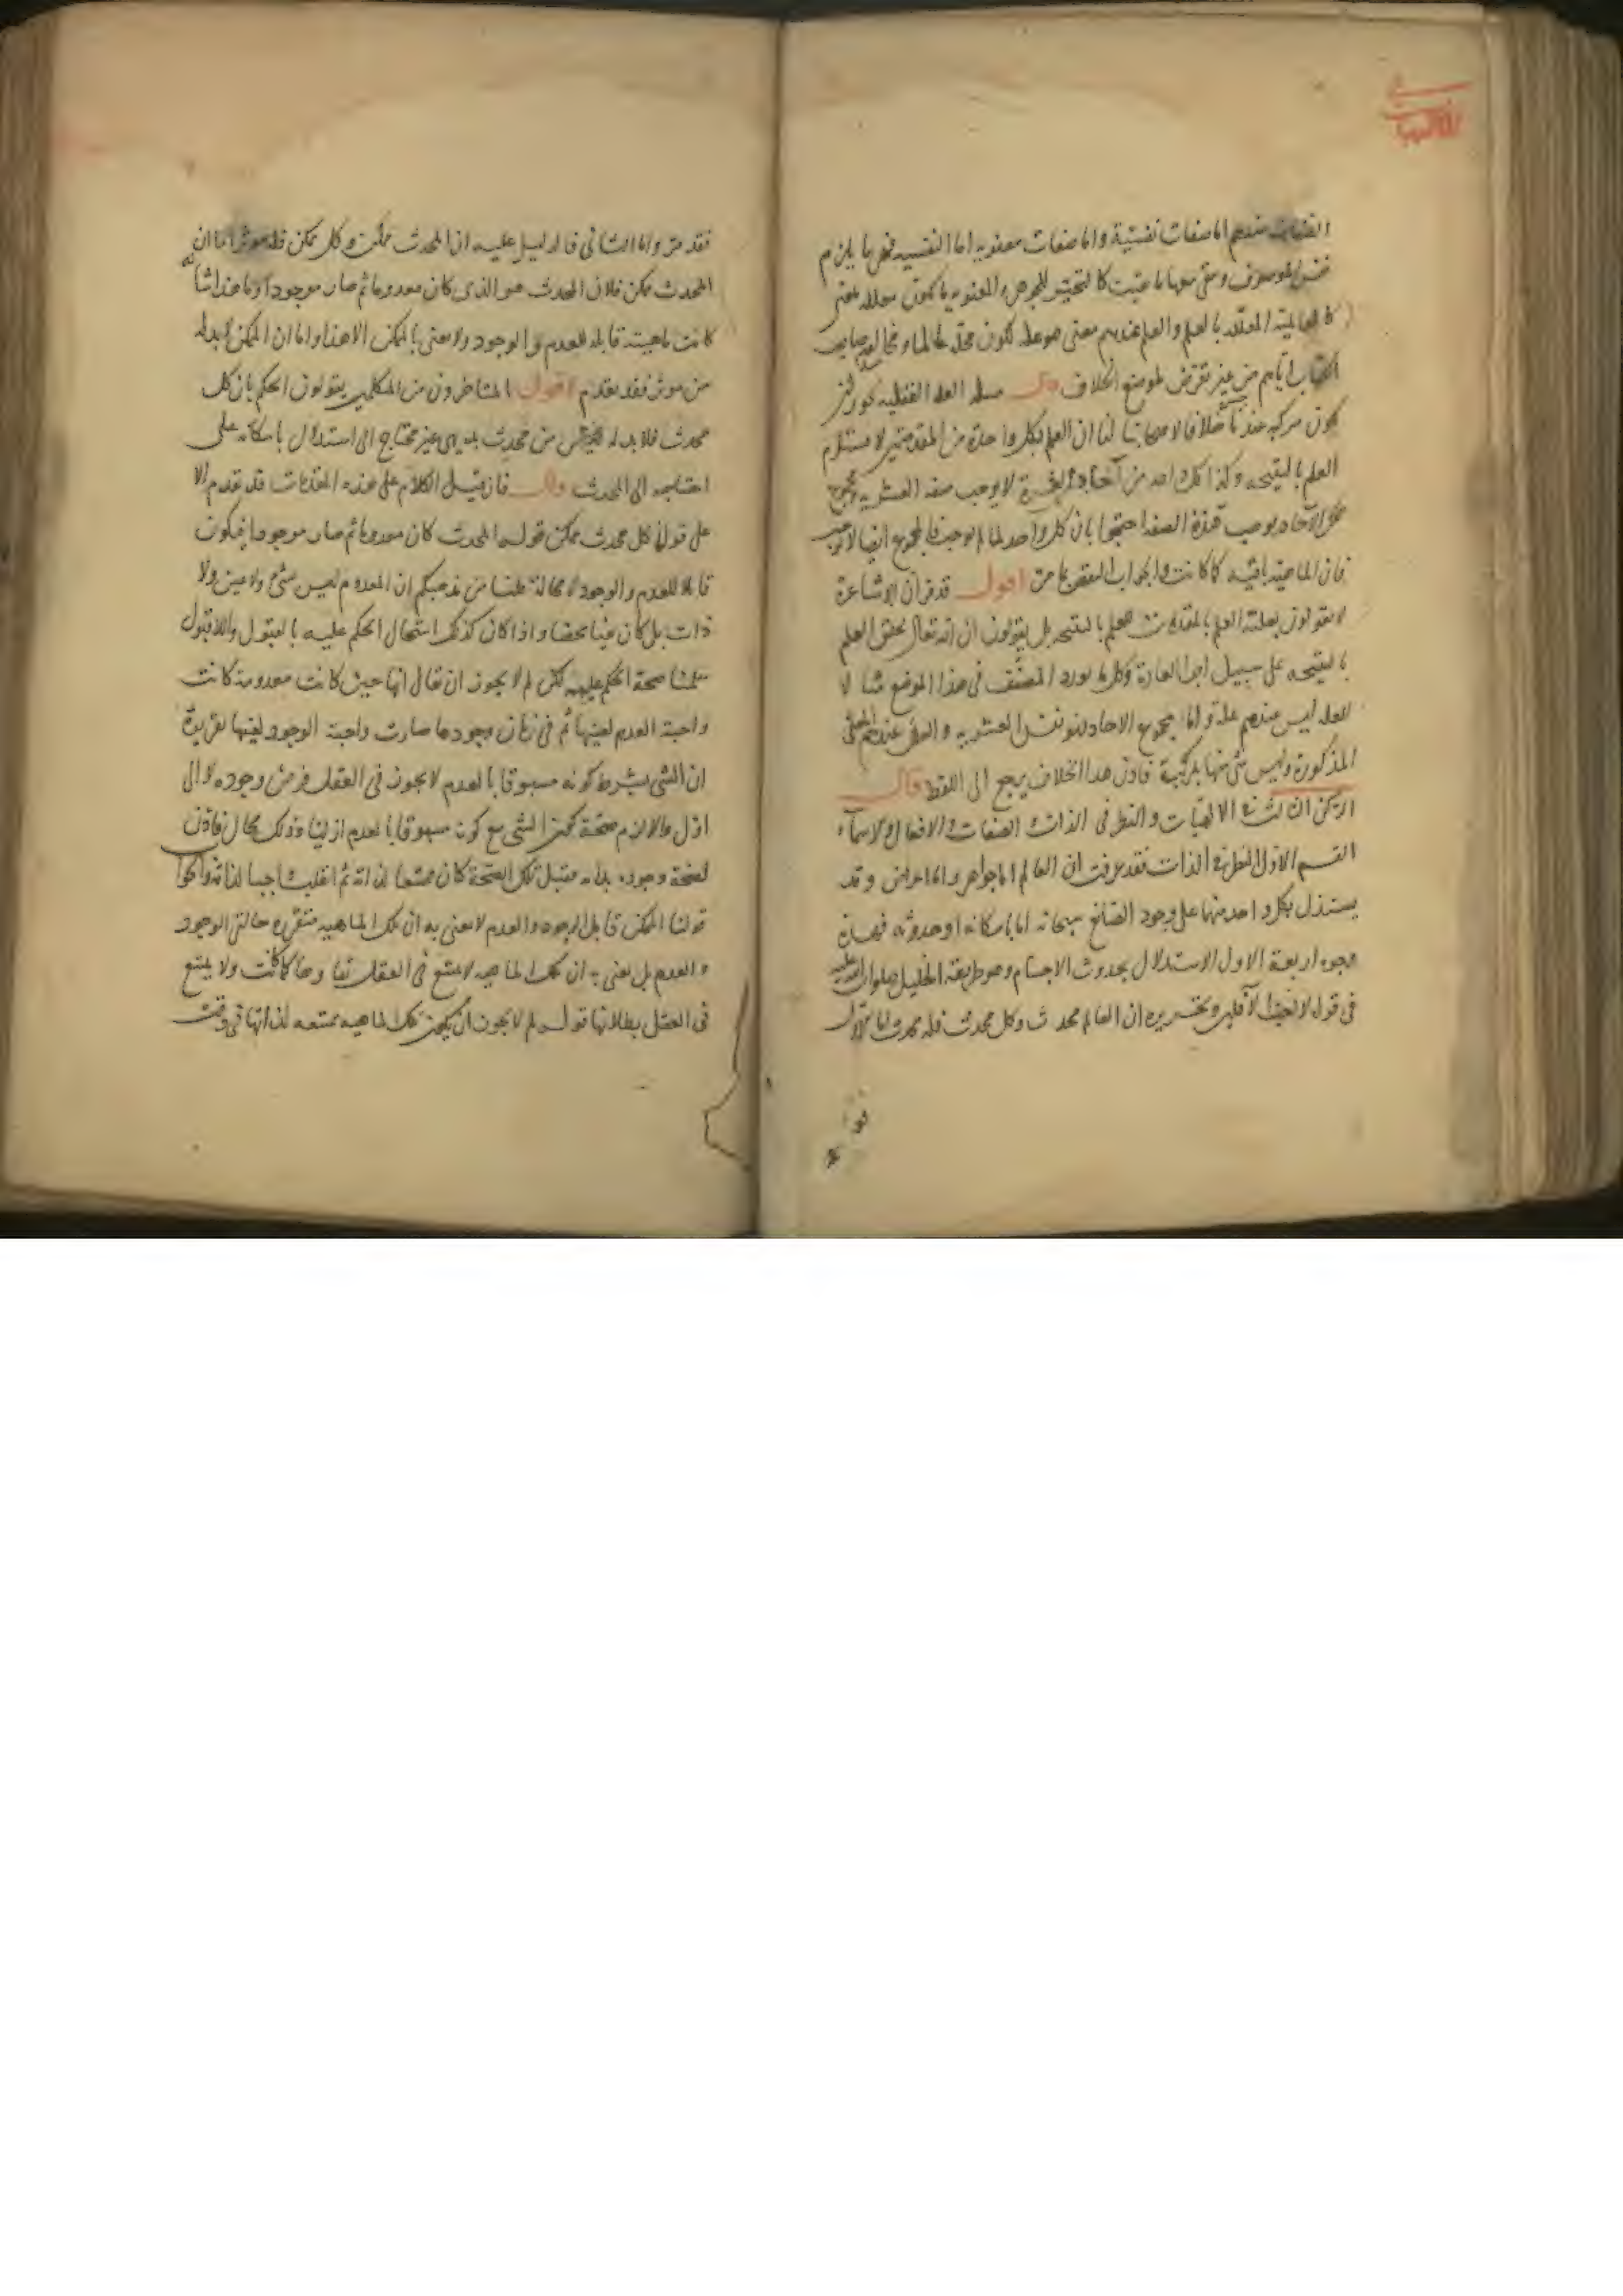 في
الالهيات
الصفات عندهم اما صفات نفسية واما صفات معنوية اما النفسية فهي ما يلزم
نفس الموصوف ومتى معها ما بقيت كالتحيز للجوهر والمعنويه ما يكون معللة بمعنى
كالعالمية المعللة بالعلم والعلم عندهم معنى هو علة لكون محله عالما
الكتاب اياهم من غير تعرض لموضع الخلاف قال مسئلة العلة العقلية يجوز ان
يكون مركبة عندنا خلافا لاصحابنا لنا ان العلم بكل واحدة من المقدمتين لا يستلزم
العلم بالنتيجه وكذا كل واحد من آحاد العشرة لا يوجب صفة العشرية ومجموع
تلك الآحاد يوجب هذه الصفة احتجوا بان كل واحد لما لم يوجب فالمجموع ايضا لا يوجب
فان الماهية باقيه كما كانت والجواب النقض بما مر اقول قد مر ان الاشاعرة
لا يقولون بعلية العلم بالمقدمات للعلم بالنتيجه بل يقولون ان الله تعالى يخلق العلم
بالنتيجه على سبيل اجراء العادة وكل ما يورد المصنف في هذا الموضع مثالا
للعلة ليس عندهم علة واما مجموع الاحاد فهو نفس العشرية والعلل عندهم هي
المذكورة وليس شئ منها بمركبة فاذن هذا الخلاف يرجع الى اللفظ قال
الركن الثالث في الالهيات والنظر في الذات والصفات والافعال والاسماء
القسم الاول النظر في الذات فقد عرفت ان العالم اما جواهر واما اعراض وقد
يستدل بكل واحد منها على وجود الصانع سبحانه اما بامكانه او حدوثه فهذه
وجوه اربعة الاول الاستدلال بحدوث الاجسام وهو طريقة الخليل صلوات الله عليه
في قوله لا احب الآفلين وتحريره ان العالم محدث وكل محدث فله محدث اما الاول
فقد مر واما الثاني فالدليل عليه ان المحدث ممكن وكل ممكن فله مؤثر اما ان
المحدث ممكن فلان المحدث هو الذي كان معدوما ثم صار موجودا وما هذا شأنه
كانت ماهيته قابلة للعدم والوجود ولا معنى بالممكن الا هذا واما ان الممكن لابد له
من مؤثر فقد تقدم اقول المتاخرون من المتكلمين يقولون الحكم بان كل
محدث فلابد له من محدث بديهى غير محتاج الى استدلال بامكانه على
احتياجه الى المحدث قال فان قيل الكلام على هذه المقدمات قد تقدم الا
على قولنا كل محدث ممكن قوله المحدث كان معدوما ثم صار موجودا فيكون
قابلا للعدم والوجود لا محالة قلنا من مذهبكم ان المعدوم ليس بشئ ولا عين ولا
ذات بل كان نفيا محضا واذا كان كذلك استحال الحكم عليه بالقبول واللاقبول
سلمنا صحة الحكم عليه لكن لم لا يجوز ان يقال انها حين كانت معدومة كانت
واجبة العدم لعينها ثم في زمان وجودها صارت واجبة الوجود لعينها تقريره
ان الشئ بشرط كونه مسبوقا بالعدم لا يجوز في العقل فرض وجوده لا الى
اول والا لزم صحة كون الشئ مع كونه مسبوقا بالعدم ازليا وذلك محال فاذن
لصحة وجوده بداية فقبل تلك الصحة كان ممتنعا لذاته ثم انقلب واجبا لذاته والجواب
قولنا الممكن قابل للوجود والعدم لا نعنى به ان تلك الماهية متقررة حالتي الوجود
والعدم بل نعنى به ان تلك الماهية لا يمتنع في العقل بقاؤها كما كانت ولا يمتنع
في العقل بطلانها قوله لم لا يجوز ان يكون تلك الماهية ممتنعه لذاتها في وقت